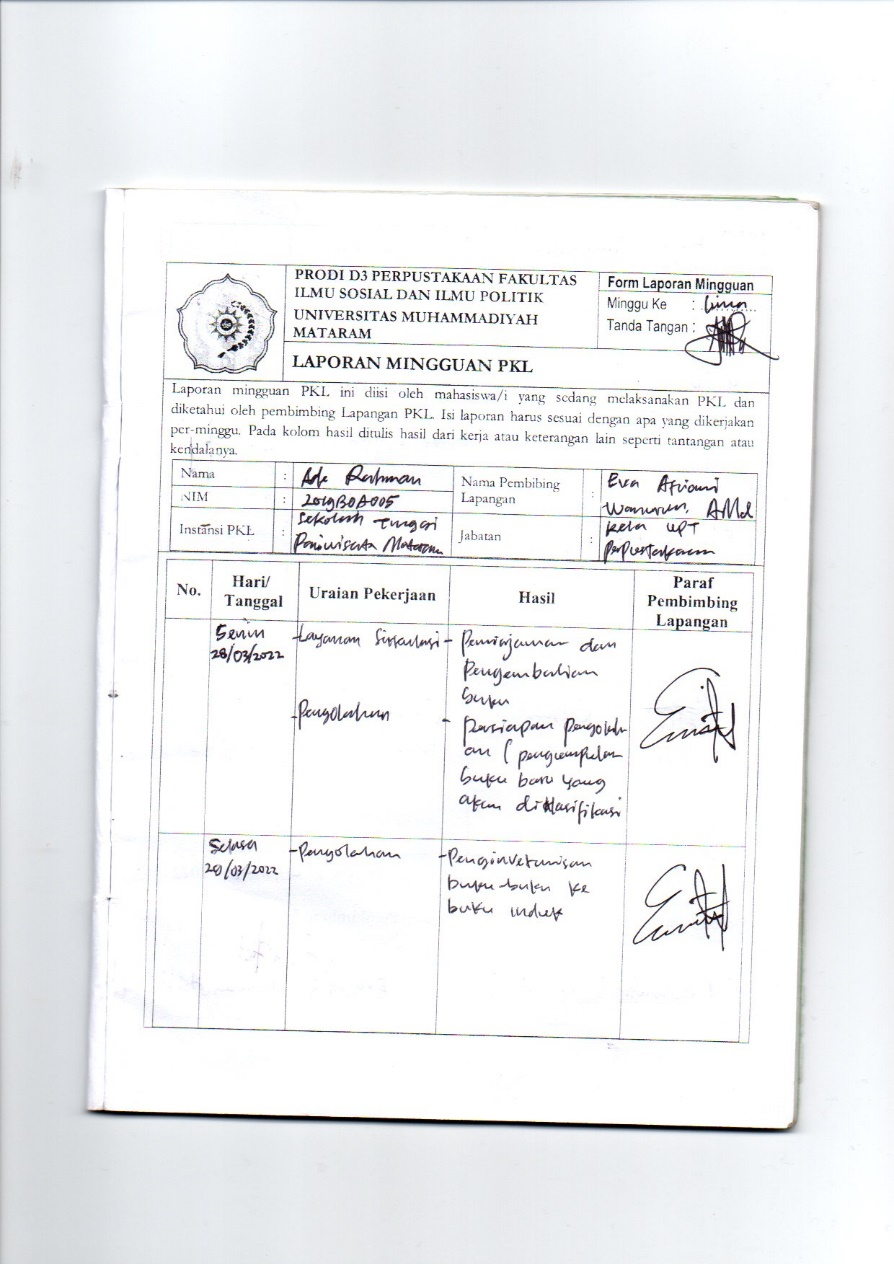 PRODI D3 PERPUSTAKAAN FAKULTAS
ILMU SOSIAL DAN ILMU POLITIK
UNIVERSITAS MUHAMMADIYAH
MATARAM
LAPORAN MINGGUAN PKL
Form Laporan Mingguan
Minggu Ke : lima
Tanda Tangan :
Laporan mingguan PKL ini diisi oleh mahasiswa/i yang sedang melaksanakan PKL dan
diketahui oleh pembimbing Lapangan PKL. Isi laporan harus sesuai dengan apa yang dikerjakan
per-minggu. Pada kolom hasil ditulis hasil dari kerja atau keterangan lain seperti tantangan atau
kendalanya.
Nama : Ade Rahman
NIM : 2019B0A005
Instansi PKL : Sekolah Tinggi
Pariwisata Mataram
Nama Pembibing
Lapangan : Eva Afriani
AMd
Jabatan : Kepala UPT
Perpustakaan
No.
Hari/
Tanggal
Uraian Pekerjaan
Hasil
Paraf
Pembimbing
Lapangan
Senin
28/03/2022
- Layanan Sirkulasi
- Peminjaman dan
Pengembalian
buku
- Pengolahan
- Persiapan pengolah
an ( pengumpulan
buku baru yang
akan diklasifikasi
Selasa
29/03/2022
- Pengolahan
- Penginvetarisan
buku-buku ke
buku induk